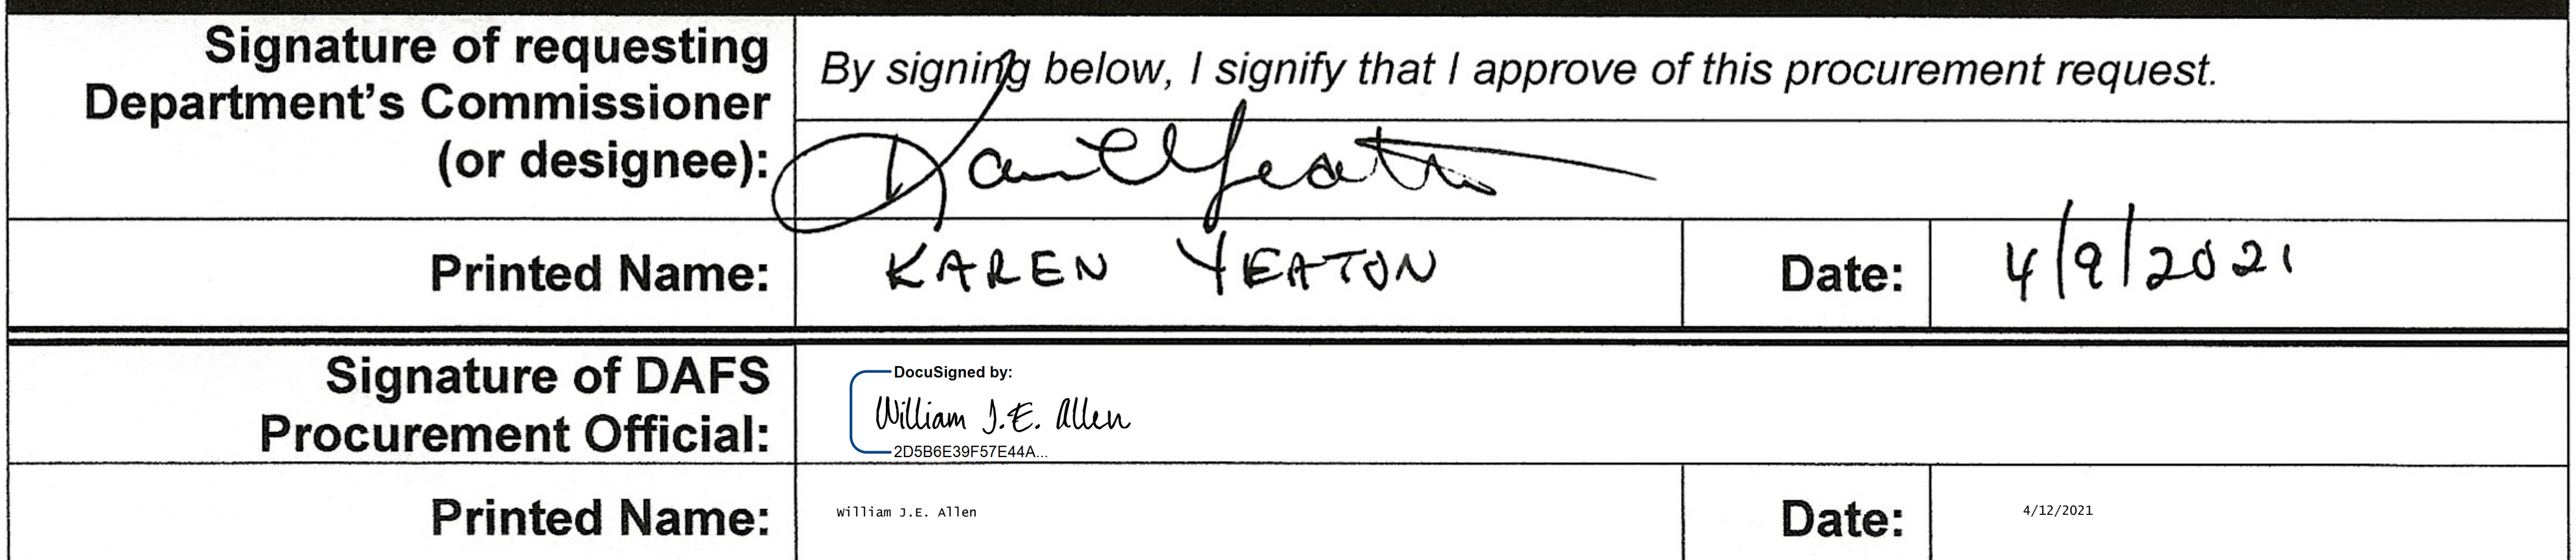 Signature of requesting
Department's Commissioner
(or designee):
By signing below, I signify that I approve of this procurement request.
Karen Yeaton
Printed Name:
KAREN YEATON
Date:
4/9/2021
Signature of DAFS
Procurement Official:
DocuSigned by:
William J.E. Allen
2D5B6E39F57E44A...
Printed Name:
William J.E. Allen
Date:
4/12/2021